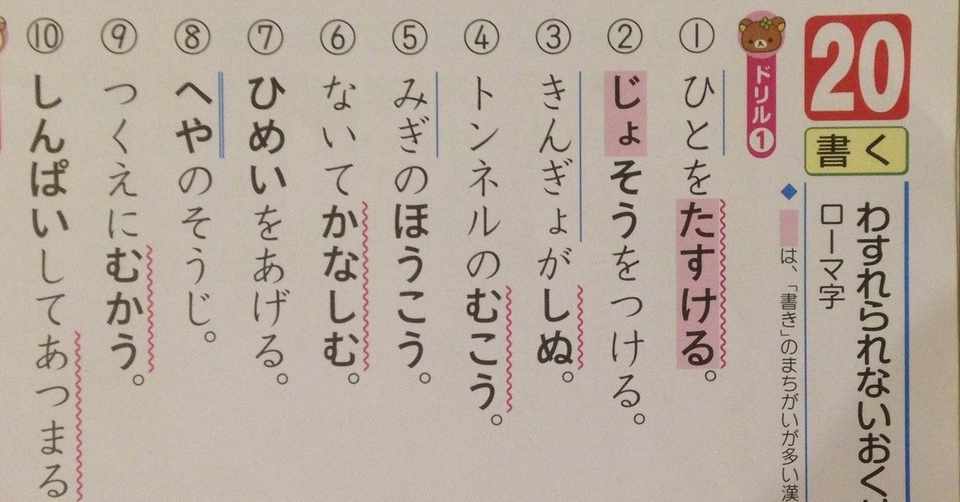 20
書く
わすれられないおく
ローマ字
は、「書き」のまちがいが多い漢
ドリル1
① ひとをたすける。
② じょそうをつける。
③ きんぎょがしぬ。
④ トンネルのむこう。
⑤ みぎのほうこう。
⑥ ないてかなしむ。
⑦ ひめいをあげる。
⑧ へやのそうじ。
⑨ つくえにむかう。
⑩ しんぱいしてあつまる